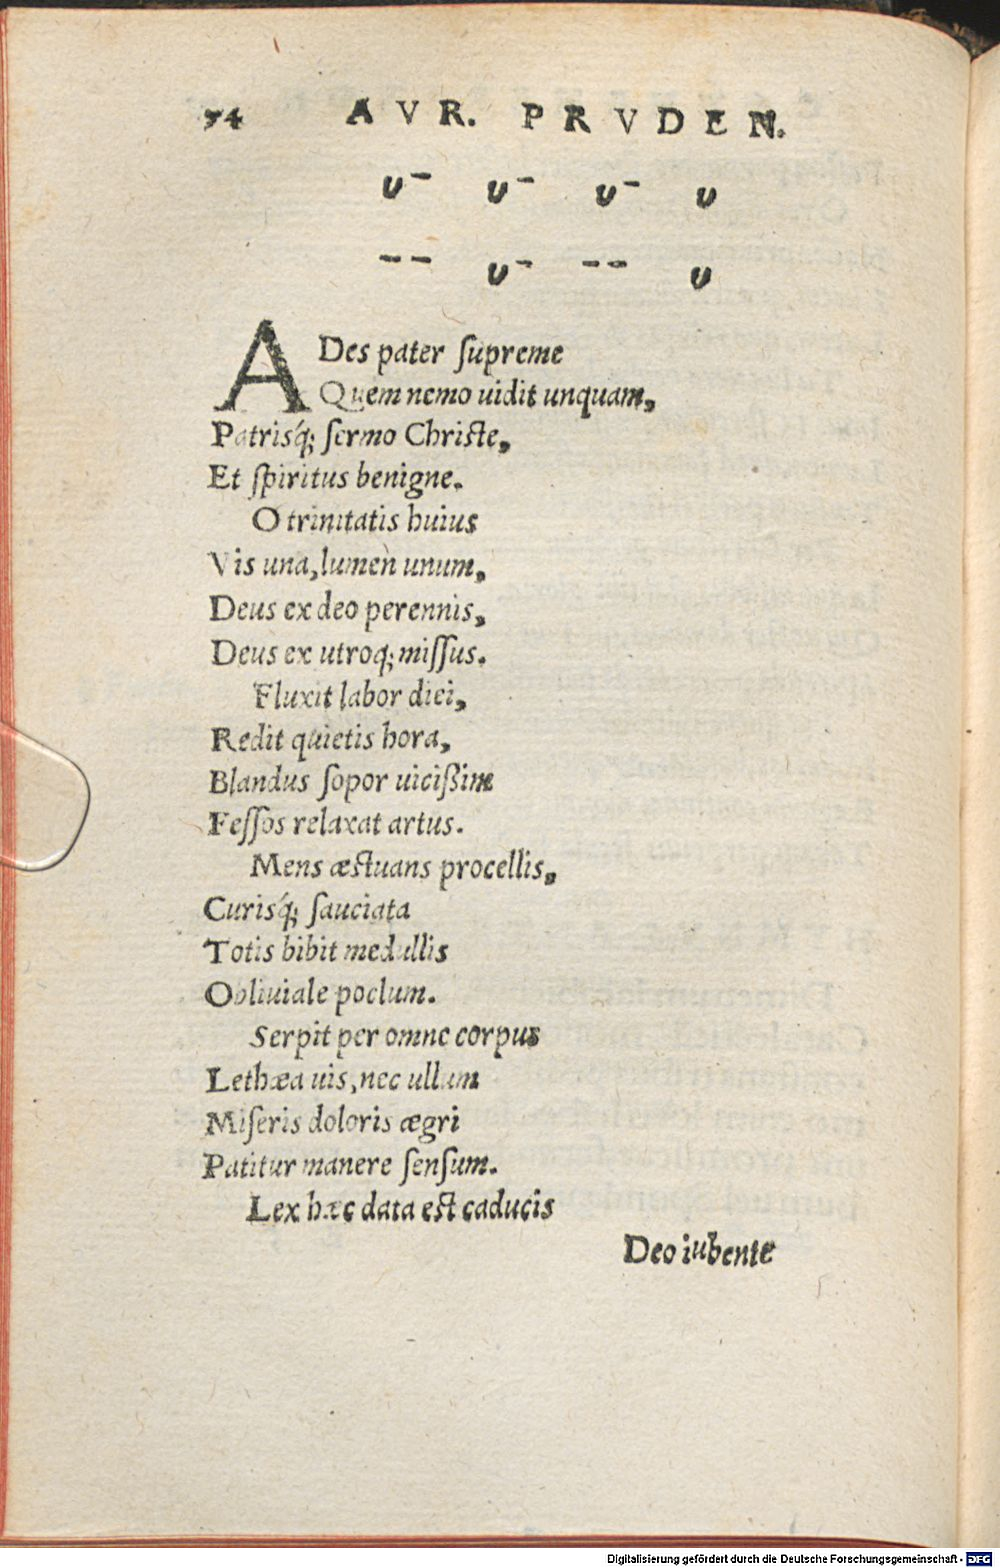 54 AVR. PRVDEN.
υ– υ– υ– υ
–– υ– –– υ
ADes pater ſupreme
Quem nemo uidit unquam,
Patrisq́; ſermo Chriſte,
Et ſpiritus benigne.
O trinitatis huius
Vis una, lumen unum,
Deus ex deo perennis,
Deus ex utroq; miſſus.
Fluxit labor diei,
Redit quietis hora,
Blandus ſopor uicißim
Feſſos relaxat artus.
Mens æſtuans procellis,
Curisq́; ſauciata
Totis bibit medullis
Obliuiale poclum.
Serpit per omne corpus
Lethæa uis, nec ullum
Miſeris doloris ægri
Patitur manere ſenſum.
Lex hæc data eſt caducis
Deo iubente
Digitalisierung gefördert durch die Deutsche Forschungsgemeinschaft - DFG